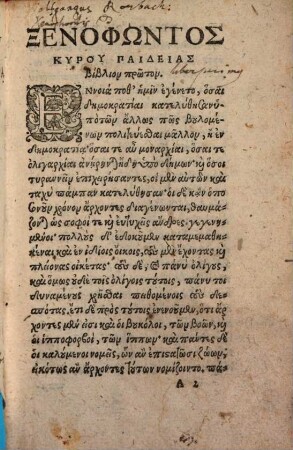 ΞΕΝΟΦΩΝΤΟΣ
ΚΥΡΟΥ ΠΑΙΔΕΙΑΣ
Βιβλίον πρῶτον.
ΕΝνοιά ποθ' ἡμῖν ἐγένετο, ὅσαι
δημοκρατίαι κατελύθησαν ὑπὸ
τῶν ἄλλως πως βουλομέ-
νων πολιτεύεσθαι μᾶλλον, ἢ ἐν
δημοκρατίᾳ· ὅσαι τε αὖ μοναρχίαι, ὅσαι τε
ὀλιγαρχίαι ἀνῄρηνται ἤδη ὑπὸ δήμων· καὶ ὅσοι
τυραννεῖν ἐπιχειρήσαντες, οἱ μὲν αὐτῶν καὶ
ταχὺ πάμπαν κατελύθησαν· οἱ δὲ κἂν ὁπο-
σονοῦν χρόνον ἄρχοντες διαγένωνται, θαυμά-
ζονται ὡς σοφοί τε καὶ εὐτυχεῖς ἄνδρες γεγενη-
μένοι· πολλοὺς δ' ἐδοκοῦμεν καταμεμαθη-
κέναι καὶ ἐν ἰδίοις οἴκοις, τοὺς μὲν ἔχοντας καὶ
πλείονας οἰκέτας· τοὺς δὲ, καὶ πάνυ ὀλίγους,
καὶ ὅμως οὐδὲ τοῖς ὀλίγοις τούτοις, πάνυ τι
δυναμένους χρῆσθαι πειθομένοις τοὺς δε-
σπότας. ἔτι δὲ πρὸς τούτοις ἐνενοοῦμεν, ὅτι ἄρ-
χοντες μέν εἰσι καὶ οἱ βουκόλοι, τῶν βοῶν, καὶ
οἱ ἱπποφορβοί, τῶν ἵππων· καὶ πάντες δὲ
οἱ καλούμενοι νομεῖς, ὧν ἂν ἐπιστατῶσι ζώων,
εἰκότως ἂν ἄρχοντες τούτων νομίζοιντο. πά-
A 2